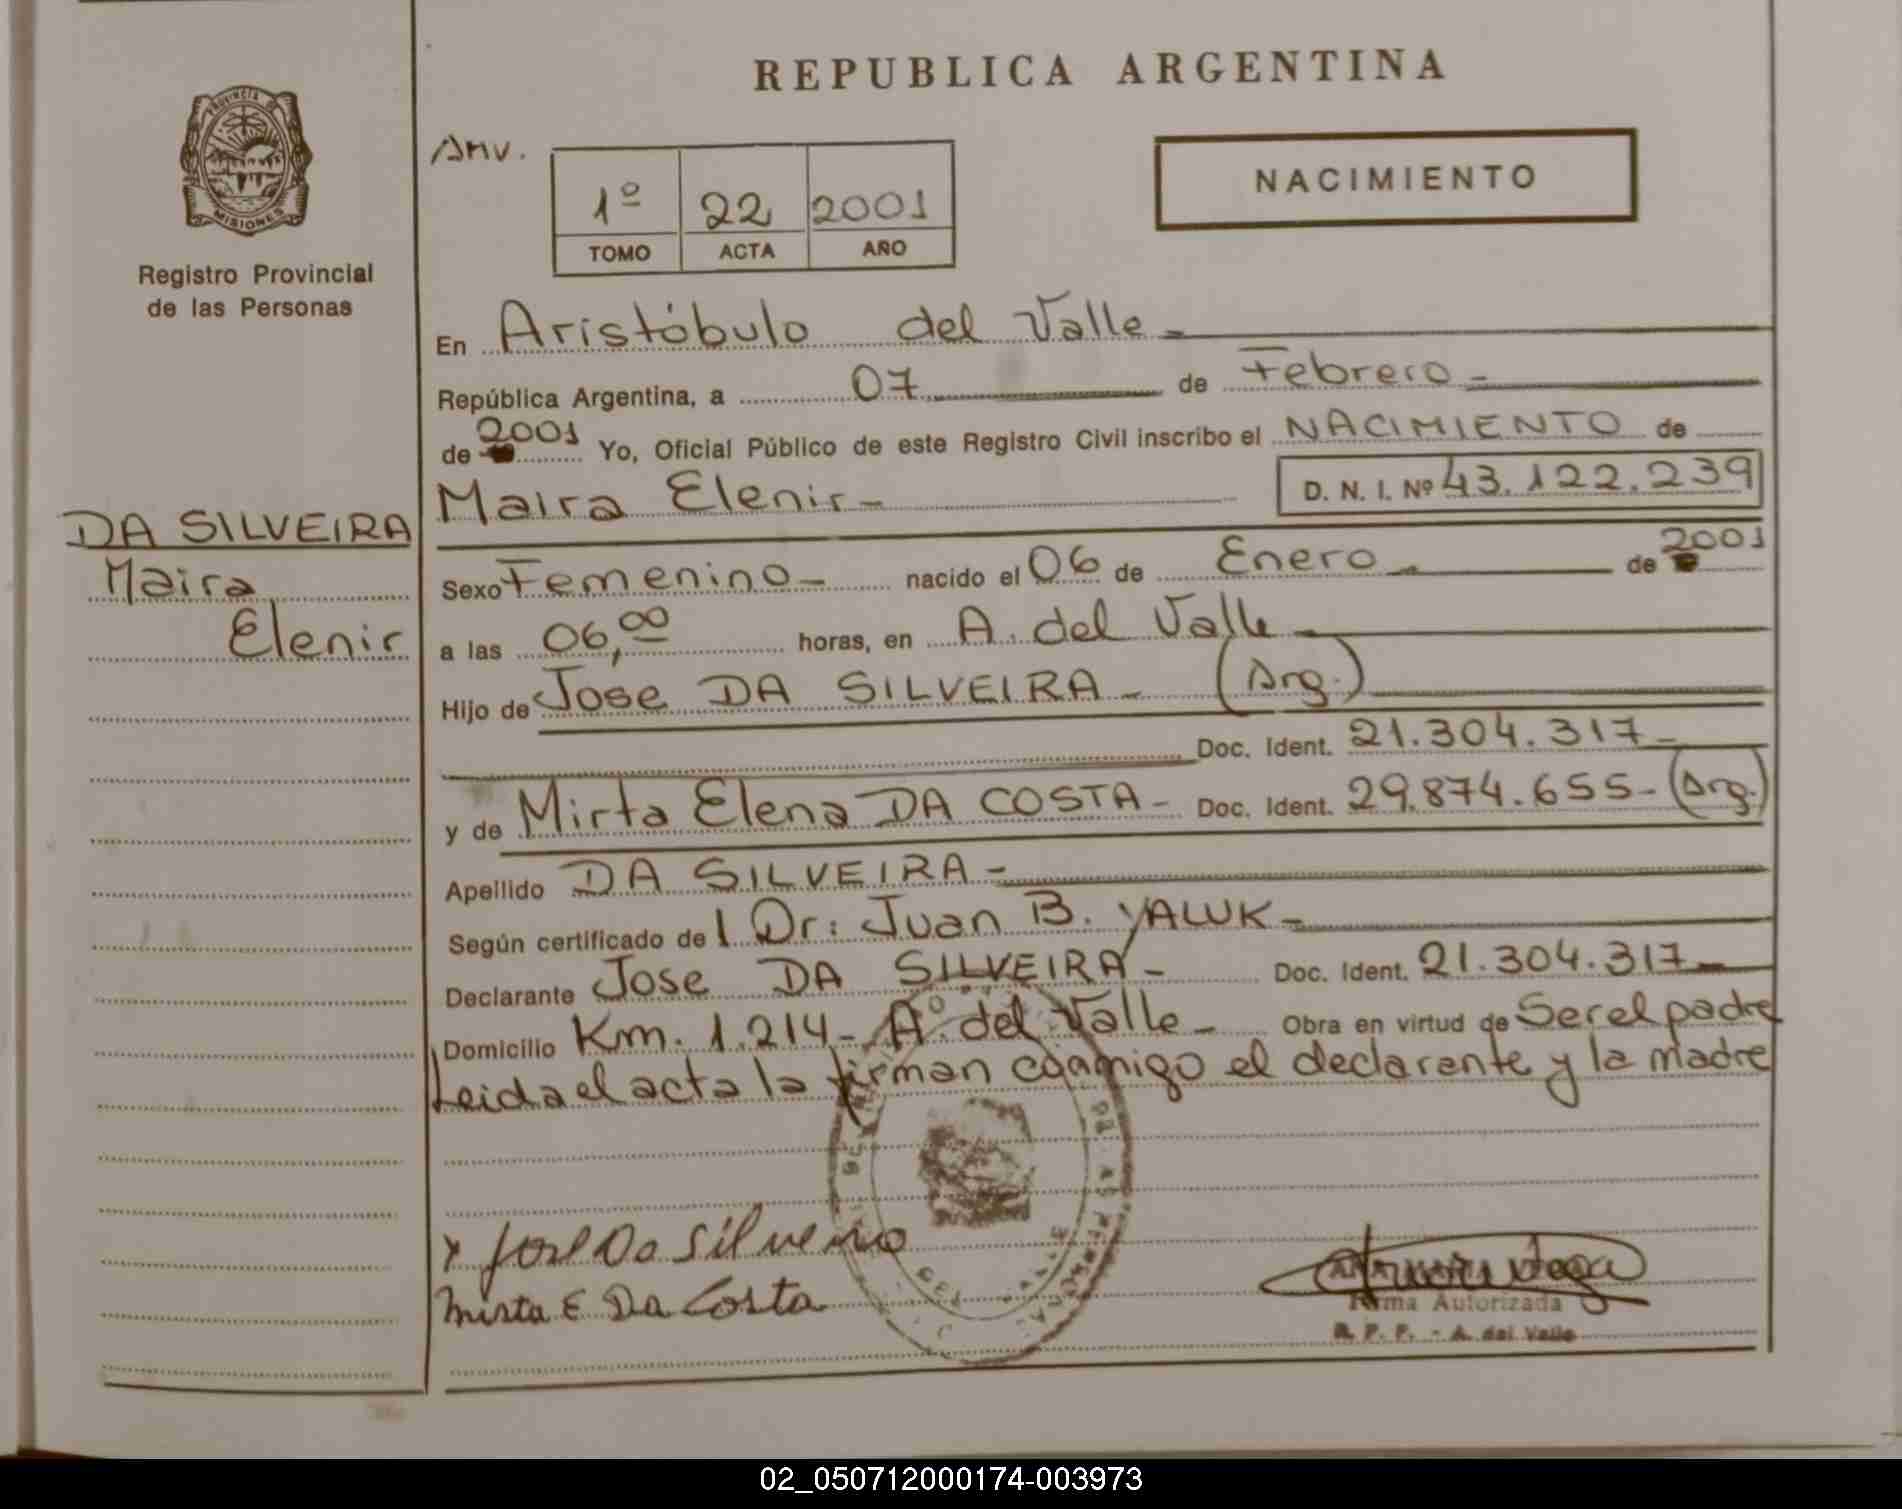 REPUBLICA ARGENTINA
PROVINCIA DE
MISIONES
Registro Provincial
de las Personas
Anv.
1º 22 2001
TOMO ACTA AÑO
NACIMIENTO
En Aristóbulo del Valle -
República Argentina, a 07 de Febrero -
de 2001 Yo, Oficial Público de este Registro Civil inscribo el NACIMIENTO de
Maira Elenir - D. N. I. Nº 43.122.239
DA SILVEIRA
Maira
Elenir
Sexo Femenino - nacido el 06 de Enero - de 2001
a las 06,00 horas, en A. del Valle -
Hijo de Jose DA SILVEIRA - (Arg.)
Doc. Ident. 21.304.317 -
y de Mirta Elena DA COSTA - Doc. Ident. 29.874.655 - (Arg.)
Apellido DA SILVEIRA -
Según certificado del Dr: Juan B. YALUK -
Declarante Jose DA SILVEIRA - Doc. Ident. 21.304.317 -
Domicilio Km. 1.214 - Aº. del Valle - Obra en virtud de Ser el padre
Leida el acta la firman conmigo el declarante y la madre
x Jose Da Silveira
Mirta E Da Costa
Firma Autorizada
R. P. P. - A. del Valle
02_050712000174-003973